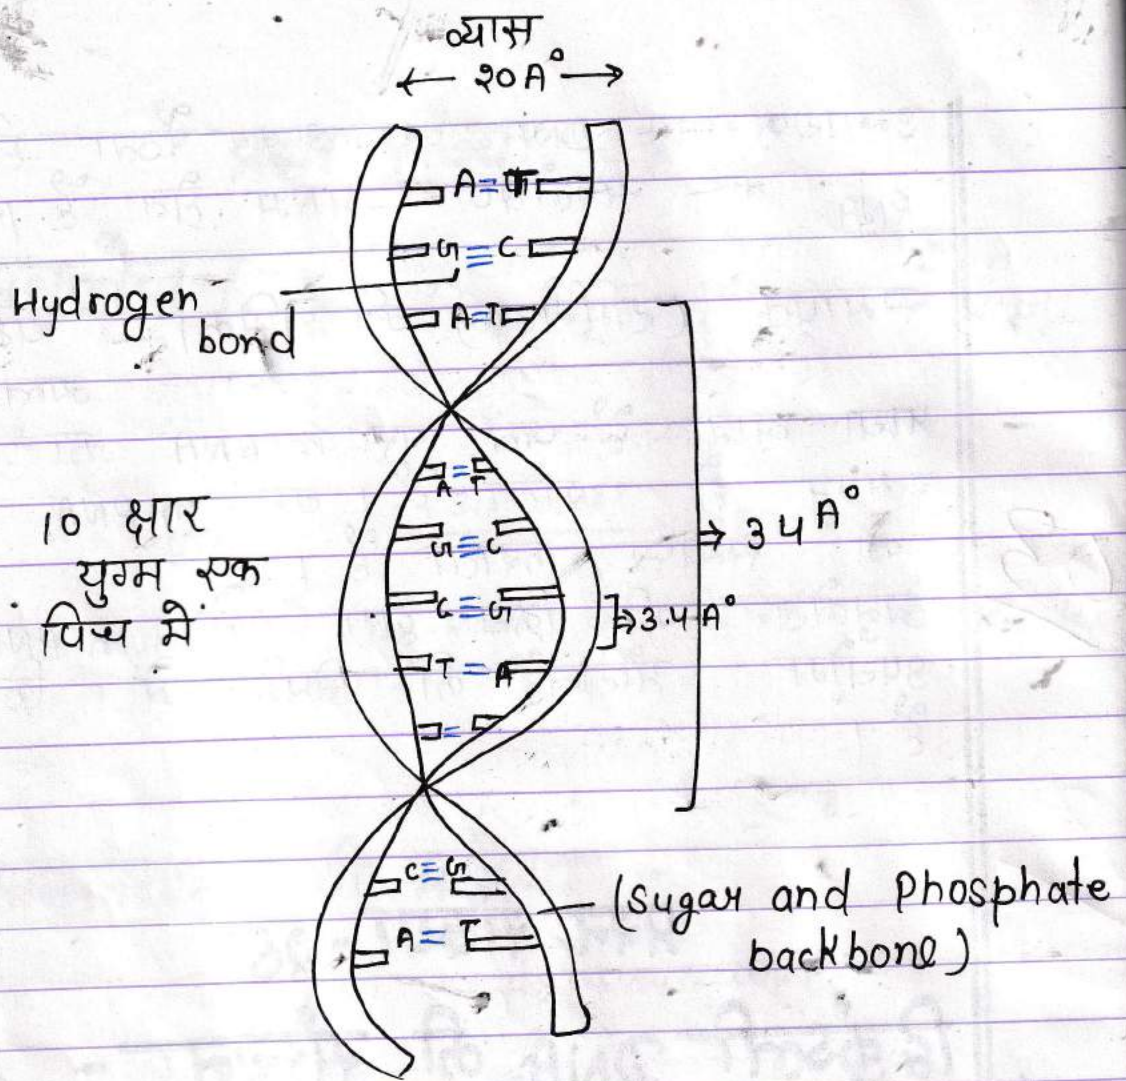 व्यास
← 20 A° →
A=T
G≡C
Hydrogen
bond
A=T
A=T
G≡C
10 क्षार
युग्म एक
पिच में
⇒ 34 A°
C≡G
⇒3.4 A°
T=A
=
C≡G
A=T
(Sugar and Phosphate
backbone)